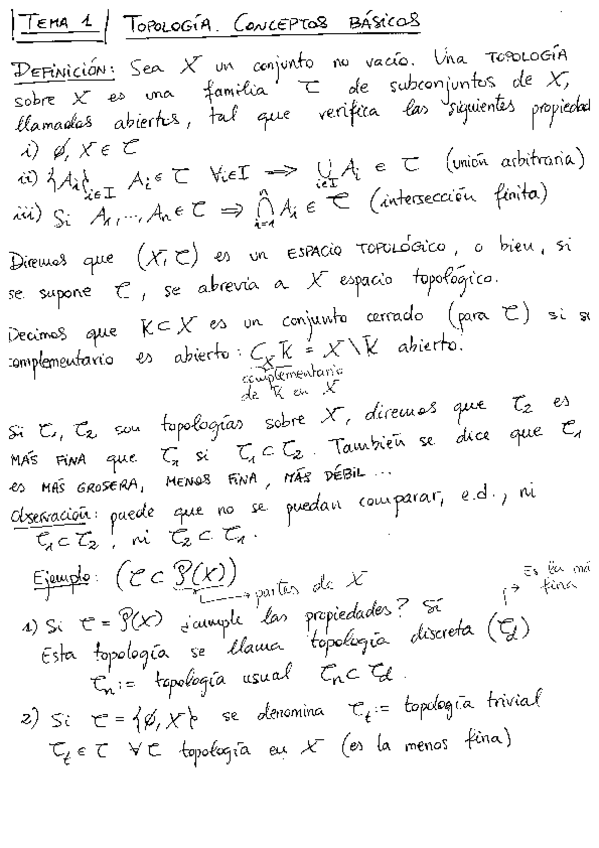 TEMA 1 TOPOLOGÍA. CONCEPTOS BÁSICOS
DEFINICIÓN: Sea X un conjunto no vacío. Una TOPOLOGÍA
sobre X es una familia τ de subconjuntos de X,
llamadas abiertos, tal que verifica las siguientes propiedad
i) ∅, X ∈ τ
ii) {Ai}i∈I Ai ∈ τ ∀i∈I ⟹ ∪i∈I Ai ∈ τ (unión arbitraria)
iii) Si A1, ..., An ∈ τ ⟹ ∩i=1^n Ai ∈ τ (intersección finita)
Diremos que (X, τ) es un ESPACIO TOPOLÓGICO, o bien, si
se supone τ, se abrevia a X espacio topológico.
Decimos que K ⊂ X es un conjunto cerrado (para τ) si su
complementario es abierto: CX K = X \ K abierto.
complementario
de K en X
Si τ1, τ2 son topologías sobre X, diremos que τ2 es
MÁS FINA que τ1 si τ1 ⊂ τ2. También se dice que τ1
es MÁS GROSERA, MENOS FINA, MÁS DÉBIL ...
Observación: puede que no se puedan comparar, e.d., ni
τ1 ⊂ τ2, ni τ2 ⊂ τ1.
Ejemplo: (τ ⊂ P(X))
→ partes de X
Es la má
fina
1) Si τ = P(X) ¿cumple las propiedades? Sí
Esta topología se llama topología discreta (τd)
τu := topología usual τu ⊂ τd.
2) Si τ = {∅, X} se denomina τt := topología trivial
τt ∈ τ ∀ τ topología en X (es la menos fina)